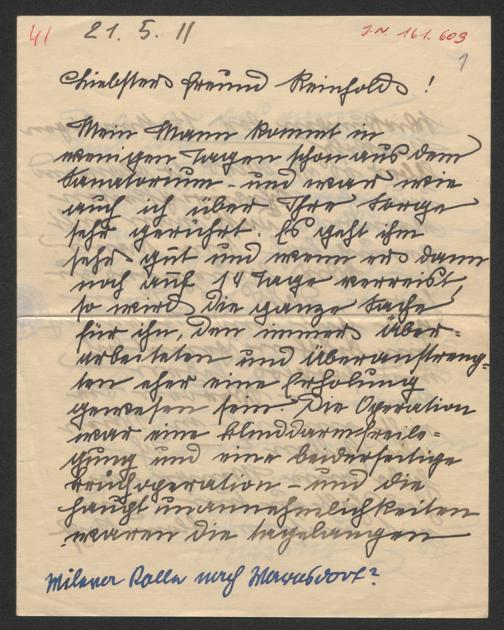 41
21. 5. 11
J.N. 161.609
1
Liebster Freund Reinhold!
Mein Mann kommt in
wenigen Tagen schon aus dem
Sanatorium - und war wie
auch ich über Ihre Sorge
sehr gerührt. Es geht ihm
sehr gut und wenn er dann
noch auf 14 Tage verreist,
so wird die ganze Sache
für ihn, den immer Über-
arbeiteten und Überanstreng-
ten eher eine Erholung
gewesen sein. Die Operation
war eine Blinddarmfreile-
gung und eine beiderseitige
Bruchoperation - und die
Hauptunannehmlichkeiten
waren die tagelangen
nach Warnsdorf?